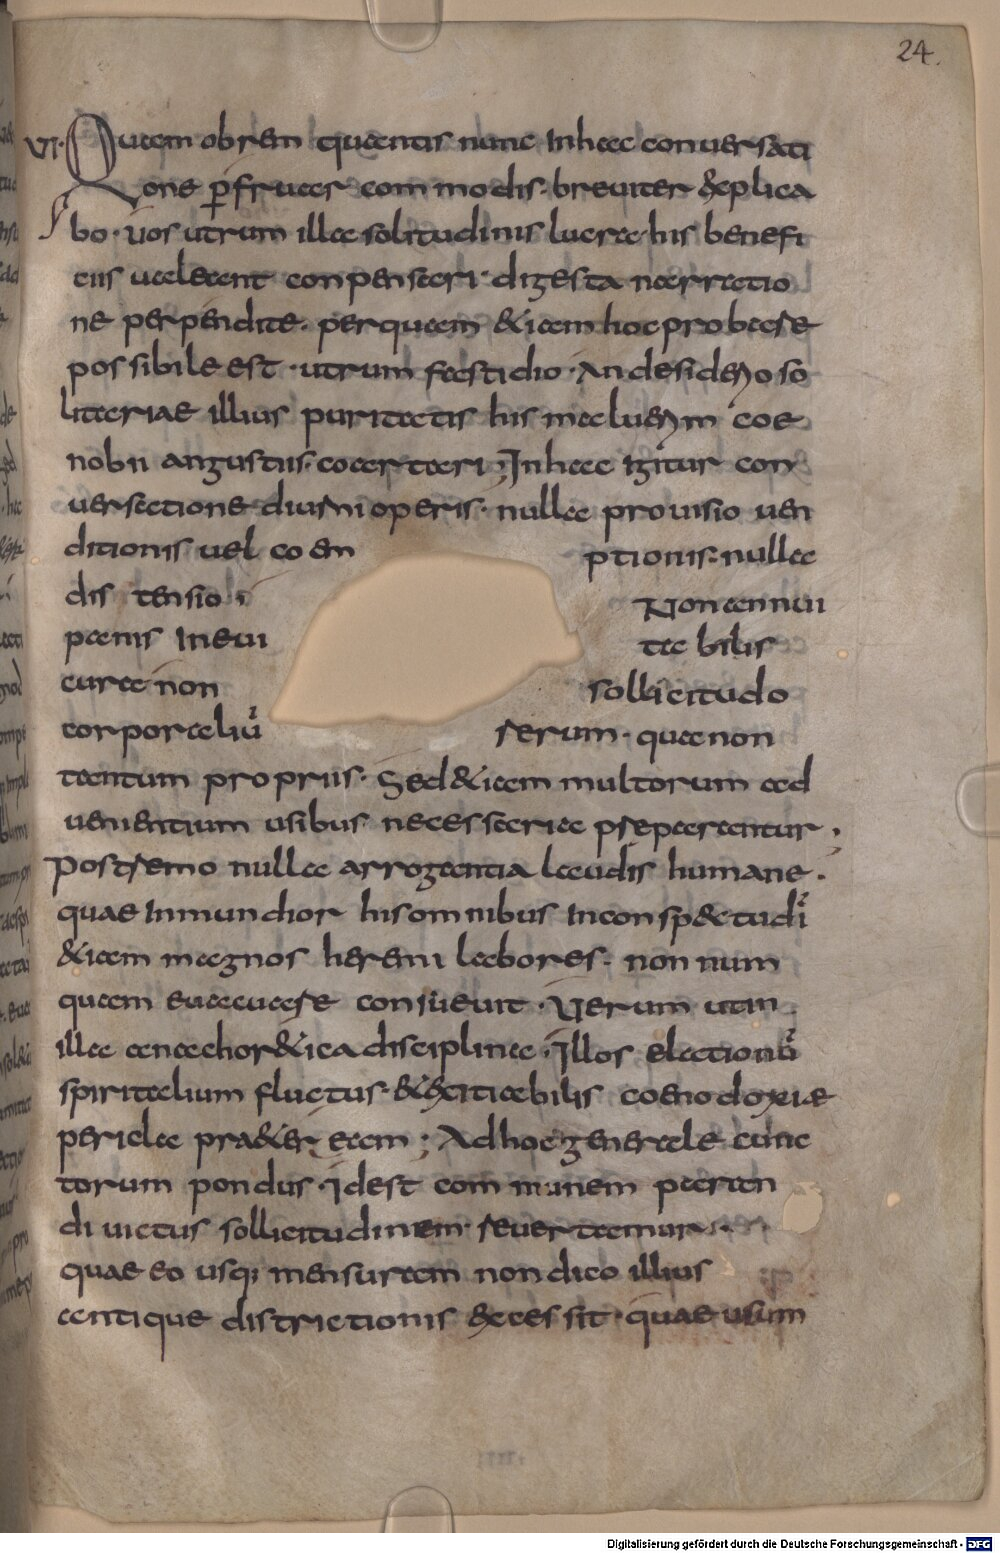 24.
VI. Quam obrem quantis nunc inhac conuersati
one p̲fruar commodis. breuiter explica
bo. uos utrum illa solitudinis lucra his benefi
ciis ualeant conpensari. digesta narratio
ne perpendite. per quam &iam hoc probasse
possibile est. utrum fastidio. an desiderio so
litariae illius puritatis his maluerim coe
nobii angustiis. coartari; Inhac igitur con
uersatione diurni operis. nulla prouisio uen
ditionis uel coem ptionis. nulla
distensio. Non annui
panis ineui tabilis
cura non sollicitudo
corporaliū rerum. quae non
tantum propriis. Sed &iam multorum ad
uenientium usibus necessaria praeparantur;
Postremo nulla arrogantia laudis humane.
quae inmundior his omnibus inconsp&tu di
&iam magnos heremi labores. non num
quam euacuasse consueuit. Verum ut in
illa anachor&ica disciplina. Illos electionū
spiritalium fluctus. & exitiabilis coenodoxiae
pericla praeteream; Ad hoc generale cunc
torum pondus. Idest communem paran
di uictus sollicitudinem reuertamur.
quae eo usq; mensuram non dico illius
antique districtionis excessit. quae usum
Digitalisierung gefördert durch die Deutsche Forschungsgemeinschaft - DFG